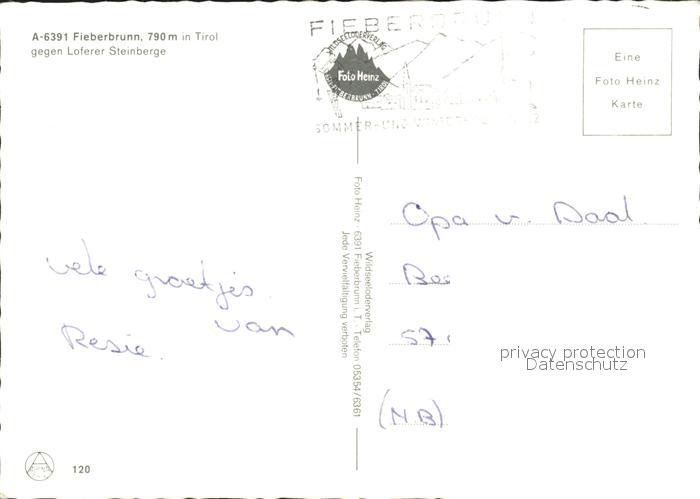 A-6391 Fieberbrunn, 790 m in Tirol
gegen Loferer Steinberge
FIEBERBRUNN
WILDSEELODERVERLAG
Foto Heinz
FIEBERBRUNN - TIROL
SOMMER-UND
Eine
Foto Heinz
Karte
vele groetjes
van
Resie.
Wildseeloderverlag
Foto Heinz · 6391 Fieberbrunn i. T. · Telefon 05354/6361
Jede Vervielfältigung verboten
Opa v. Daal.
57
(NB)
privacy protection
Datenschutz
120